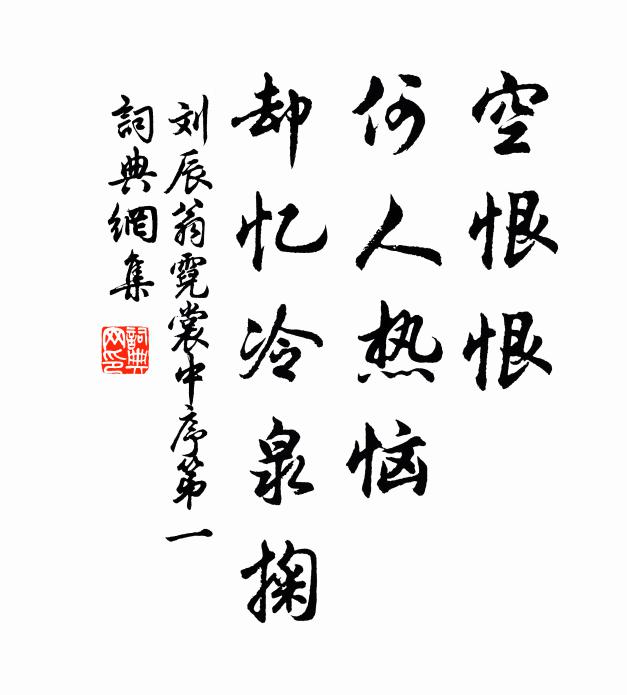 空恨恨
何人热恼
却忆冷泉掬
刘辰翁霓裳中序第一
詞典網集
詞典网印